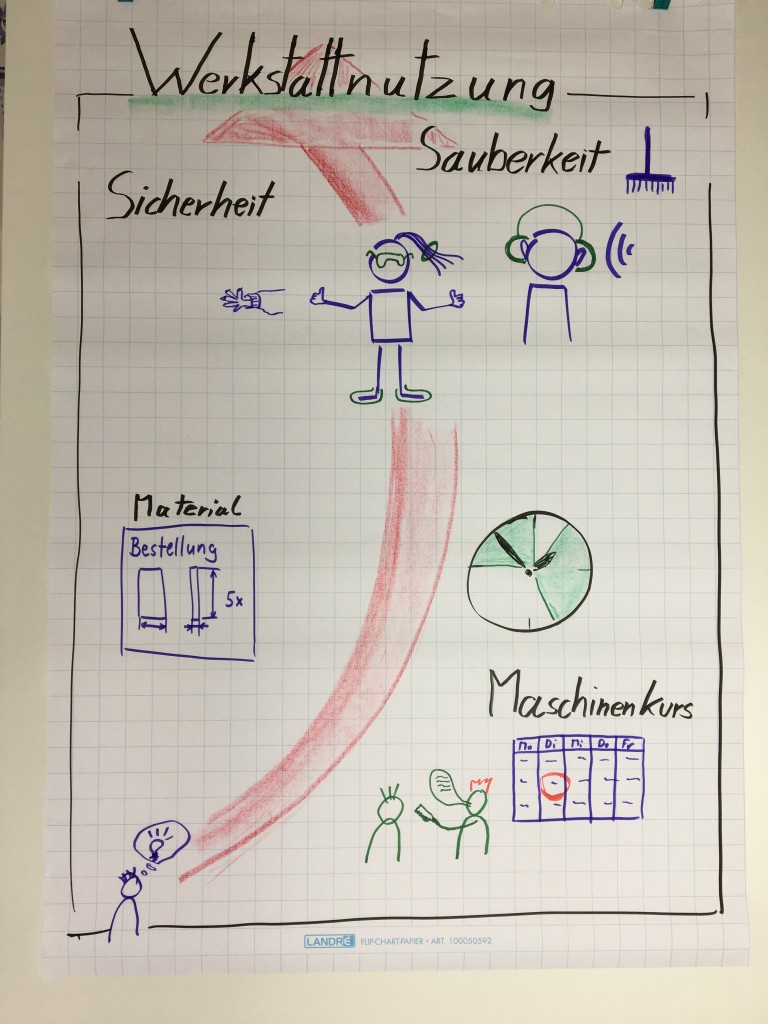 Werkstattnutzung
Sauberkeit
Sicherheit
Material
Bestellung
5x
Maschinenkurs
Mo Di Mi Do Fr
LANDRÉ FLIP-CHART-PAPIER • ART. 100050592